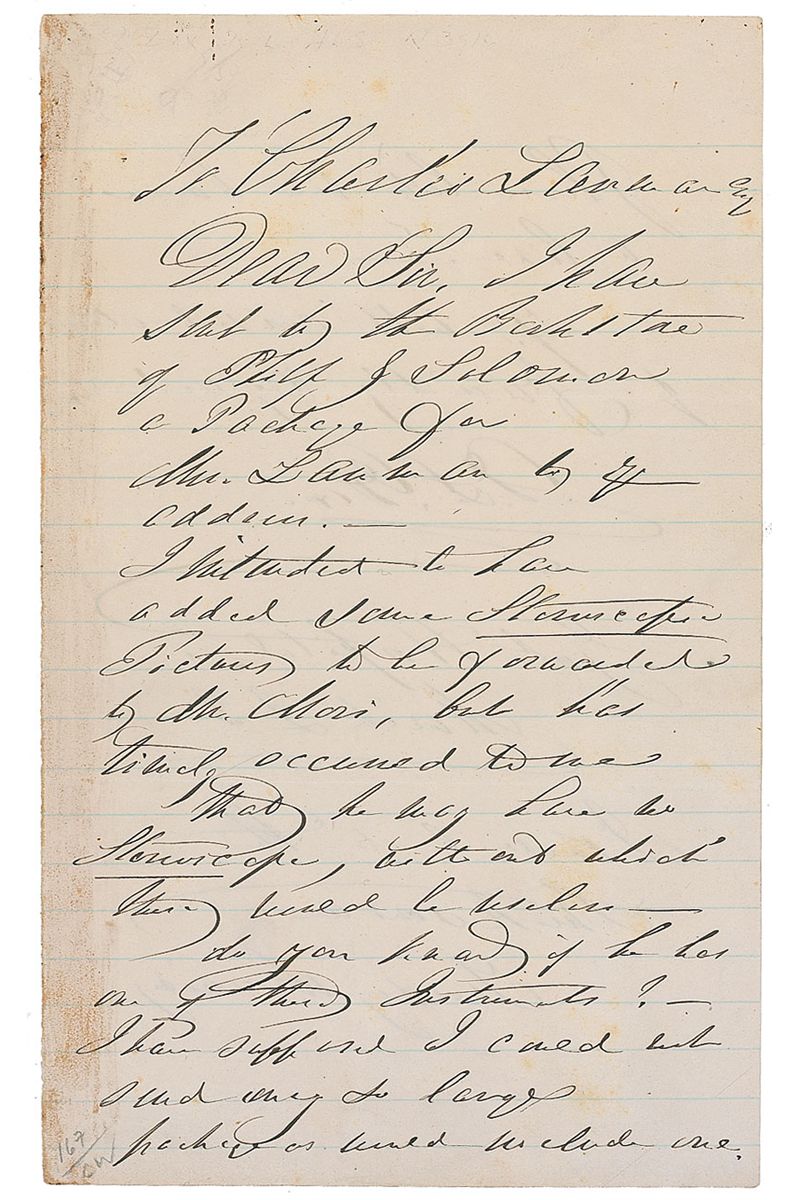 To Charles Lanman Esq
Dear Sir, I have
sent by the Bookstore
of Philp & Solomon
a Package for
Mr. Lanman by
address. —
I intended to have
added some Stereoscopic
Pictures to be forwarded
by Mr. Mori, but has
timely occurred to me
that he may have no
Stereoscope, without which
these would be useless —
do you know if he has
one of these Instruments? —
I have supposed I could not
send away so large
package as would include one.
167